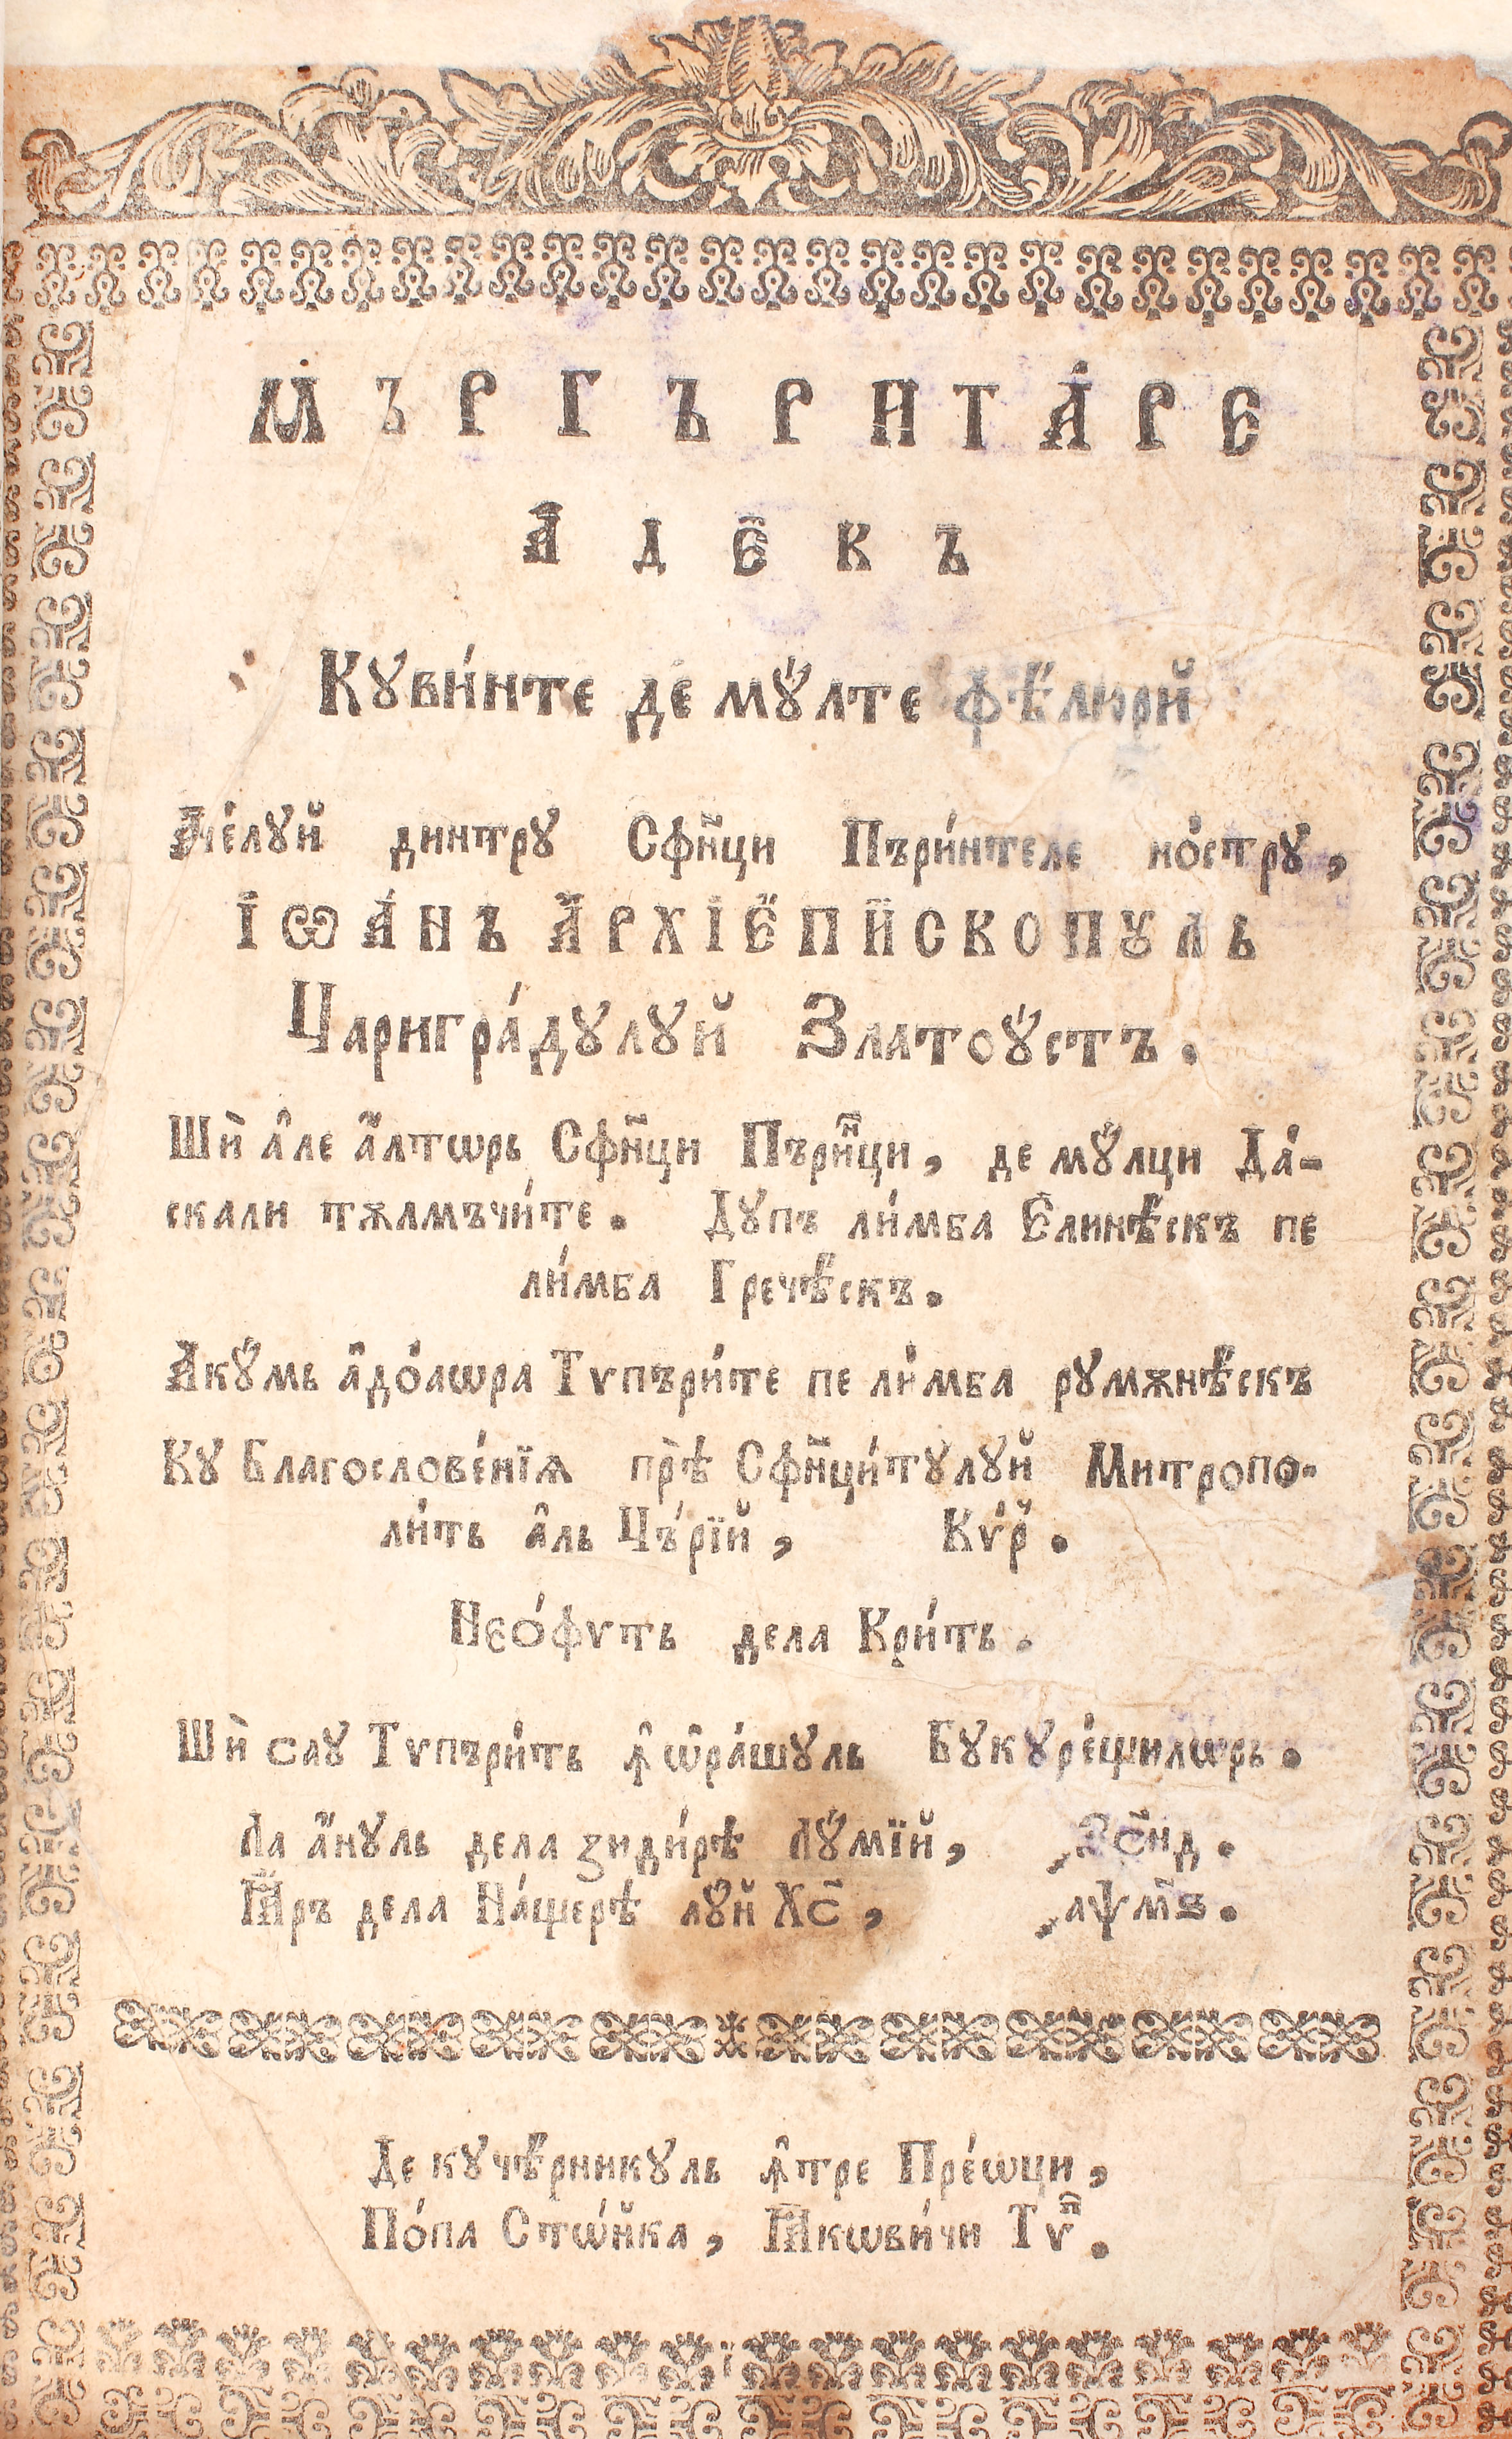 МЪРГЪРИТА́РЕ
А҆ДЕ҆КЪ
Кꙋви́нте де мꙋ́лте фѣ́люрй
Ачéлуй динтру Сфи҃нци Пъри́нтеле но́стру,
І҆ѠА́НЪ А҆РХІЕ҆ПИ҆СКОПꙊЛЬ
Цариградꙋлуй Златоꙋ́стъ.
Шѝ а҆ле а҆лтѡрь Сфи҃нци Пъри҃нци, де мꙋ́лци Да́-
скали тѫлмъчи́те. Дупъ ли́мба Елинѣ́скъ пе
ли́мба Гречѣ́скъ.
Акꙋ́мь а҆до́аѡра Тѵпъри́те пе ли́мба румѫнѣ́скъ
Кꙋ Благослове́нїѧ прѣ̀ Сфи҃нци́тꙋлуй Митропо-
ли́ть а҆ль Цъ́рїй, Кѵ́р.
Нео́фѵть дела Кри́ть.
Шѝ сау Тѵпъри́ть ꙟ҆ѡ҆ра́шꙋль Бꙋкуре́щилѡрь.
Ла а҆нꙋль дела зиди́рѣ Лꙋ́мїй, ҂ЗС҃НД.
Ꙗ҆ръ дела На́щерѣ лꙋ́й Хс҃, ҂аѱм҃ѕ.
Де кучѣ́рникꙋль ꙟ҆тре Пре́ѡци,
По́па Стѡ́йка, Ꙗ҆кѡви́чи Тѵⷫ҇.